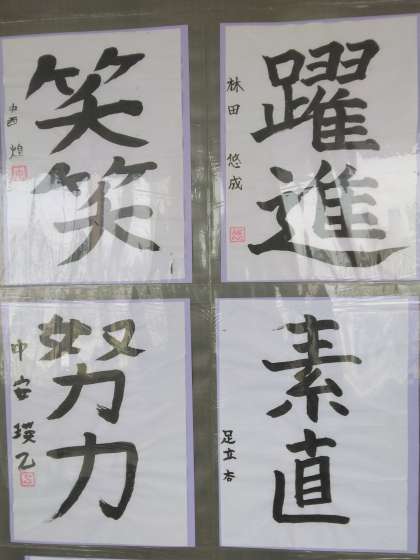 躍進
林田 悠成
笑笑
中西 煌
素直
足立 杏
努力
中安 瑛乙